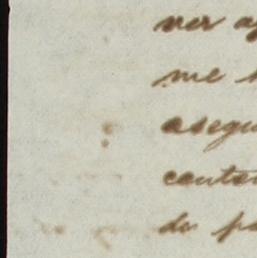 ver a
me
asegu
conten
de pa